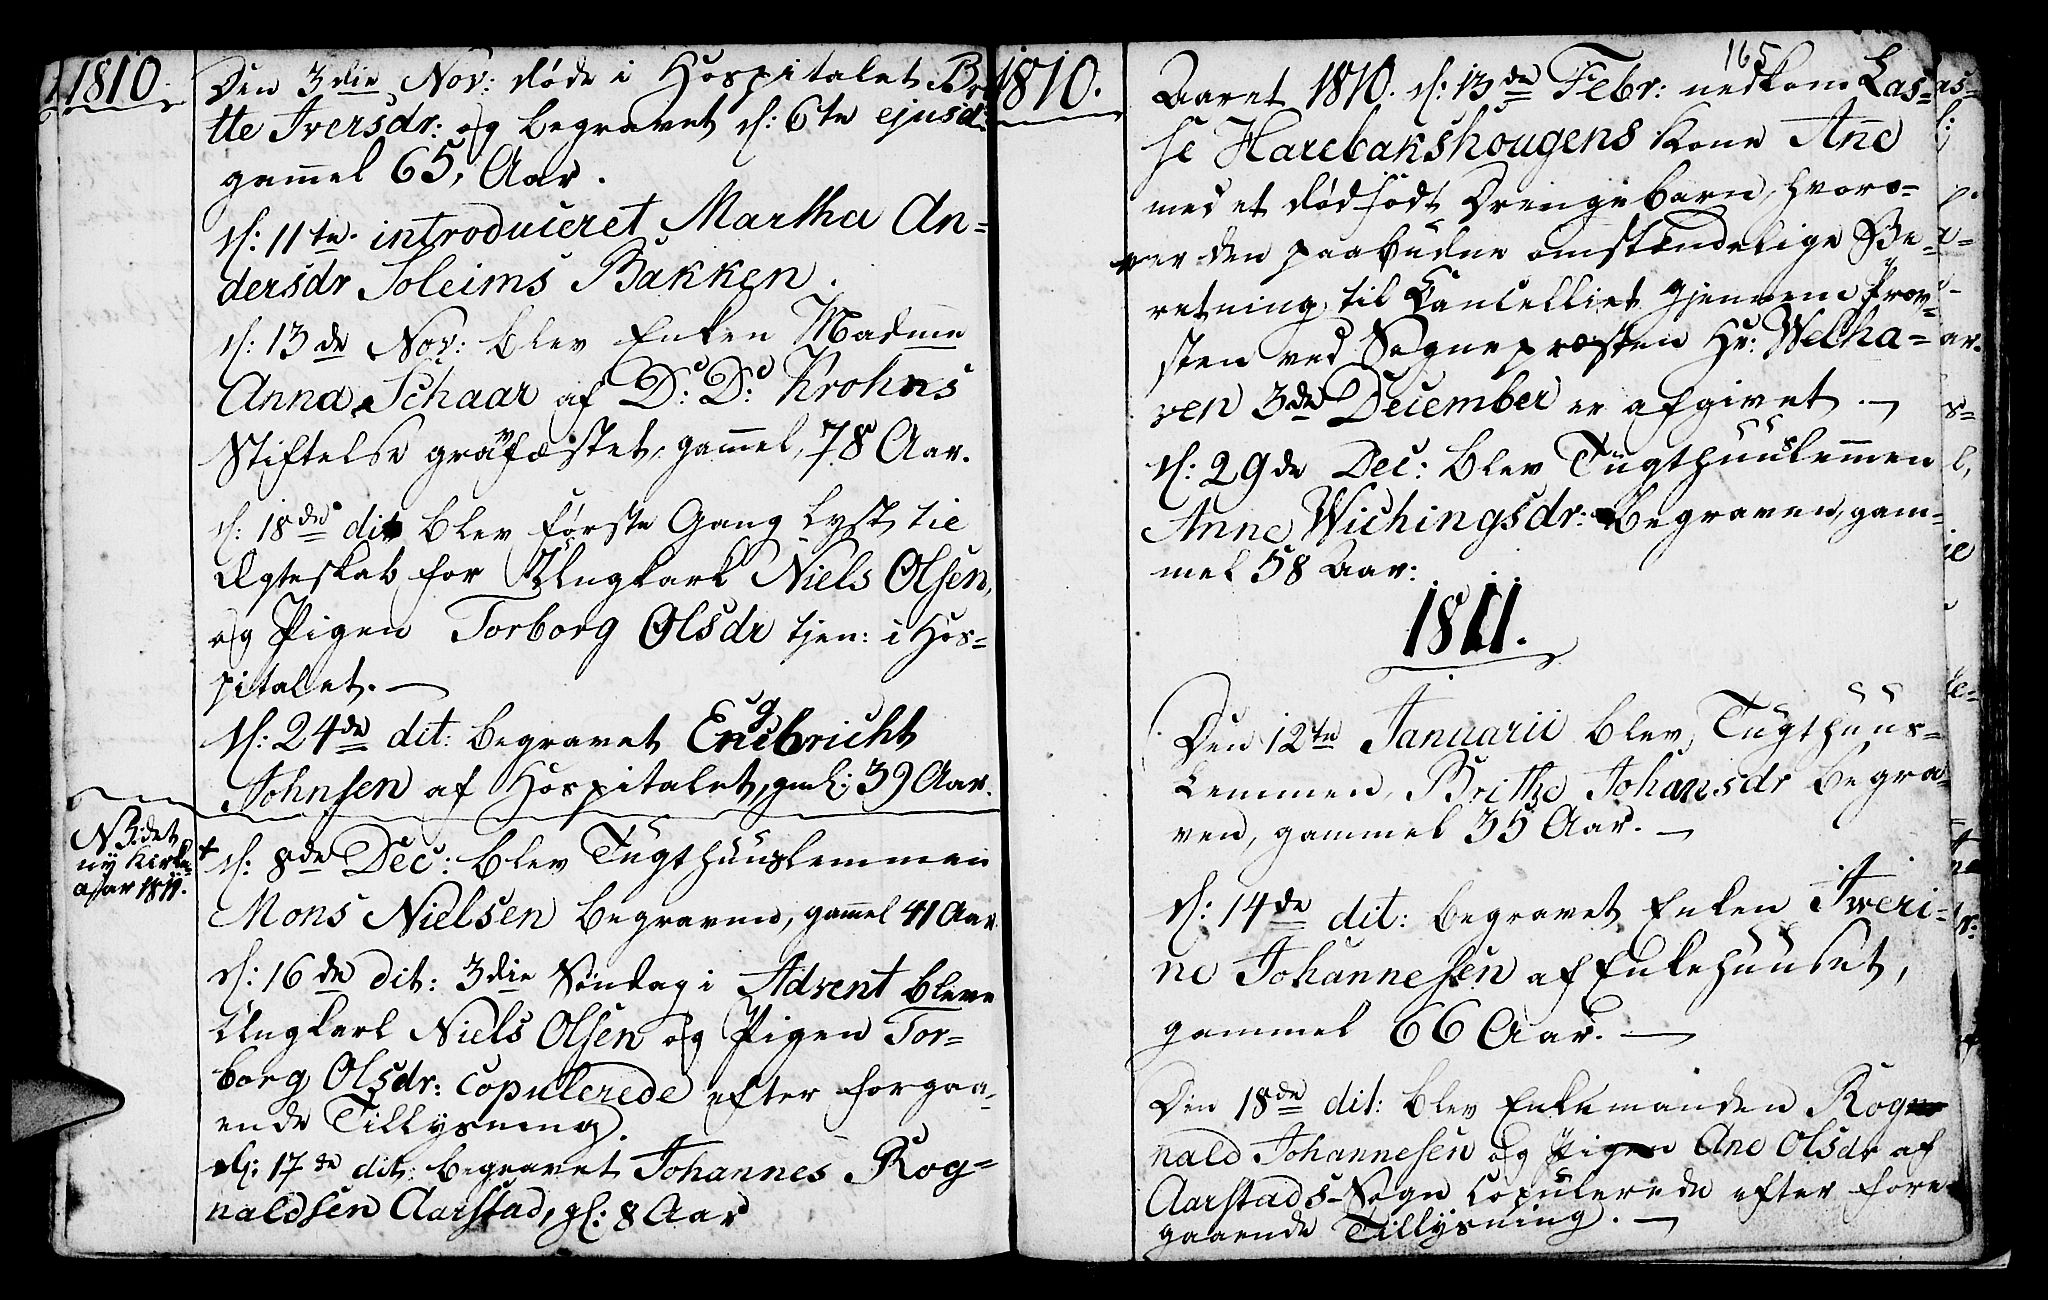 1810.
Den 3die Nov: døde i Hospitalet Be
tte Iversdr: og begravet d: 6te ejusd:
gam̄el 65, Aar.
d: 11te. introduceret Martha An=
dersdr Soleims Bakken.
d: 13de Nov: blev Enken Madme
Anna Schaar af D: D: Krohns
Stiftelse gravfæstet, gam̄el, 78 Aar.
d: 18de dit blev første Gang lyst til
Ægteskab for Ungkarl Niels Olsen,
og Pigen Torborg Olsdr tjen: i Hos=
pitalet. —
d: 24de dit: begravet Engebricht
Johnsen af Hospitalet, gml: 39 Aar.
NB: det
ny Kirke=
aar 1811.
+ d: 8de Dec: blev Tugthuuslemmen
Mons Nielsen begraven, gam̄el 41 Aar
d: 16de dit: 3die Søndag i Advent bleve
Ungkarl Niels Olsen og Pigen Tor=
borg Olsdr: copulerede efter forgaa=
ende Tillysning.
d: 17de dit: begravet Johannes Rog=
naldsen Aarstad, gl: 8 Aar
165
1810.
Aaret 1810. d: 13de Febr: nedkom Las=
se Harebakshougens Kone Ane
med et dødfødt Drengebarn, hvoro=
ver den paabudne omstændelige Be=
retning til Cancelliet gjennem Prov=
sten ved Sognepræsten Hr: Welha=
ven 3de December er afgivet. —
d: 29de Dec: blev Tugthuuslem̄en
Anne Wichingsdr: begraven, gam=
mel 58 Aar:
1811.
Den 12te Januarii blev Tugthuus=
Lemmen, Brithe Johansdr begra=
ven, gammel 35 Aar. —
d: 14de dit: begravet Enken Iveri=
ne Johannesen af Enkehuuset,
gammel 66 Aar. —
Den 18de dit: blev Enkemanden Rog
nald Johannesen og Pigen Ane Olsdr af
Aarstads-Sogn copulerede efter fore=
gaaende Tillysning. —